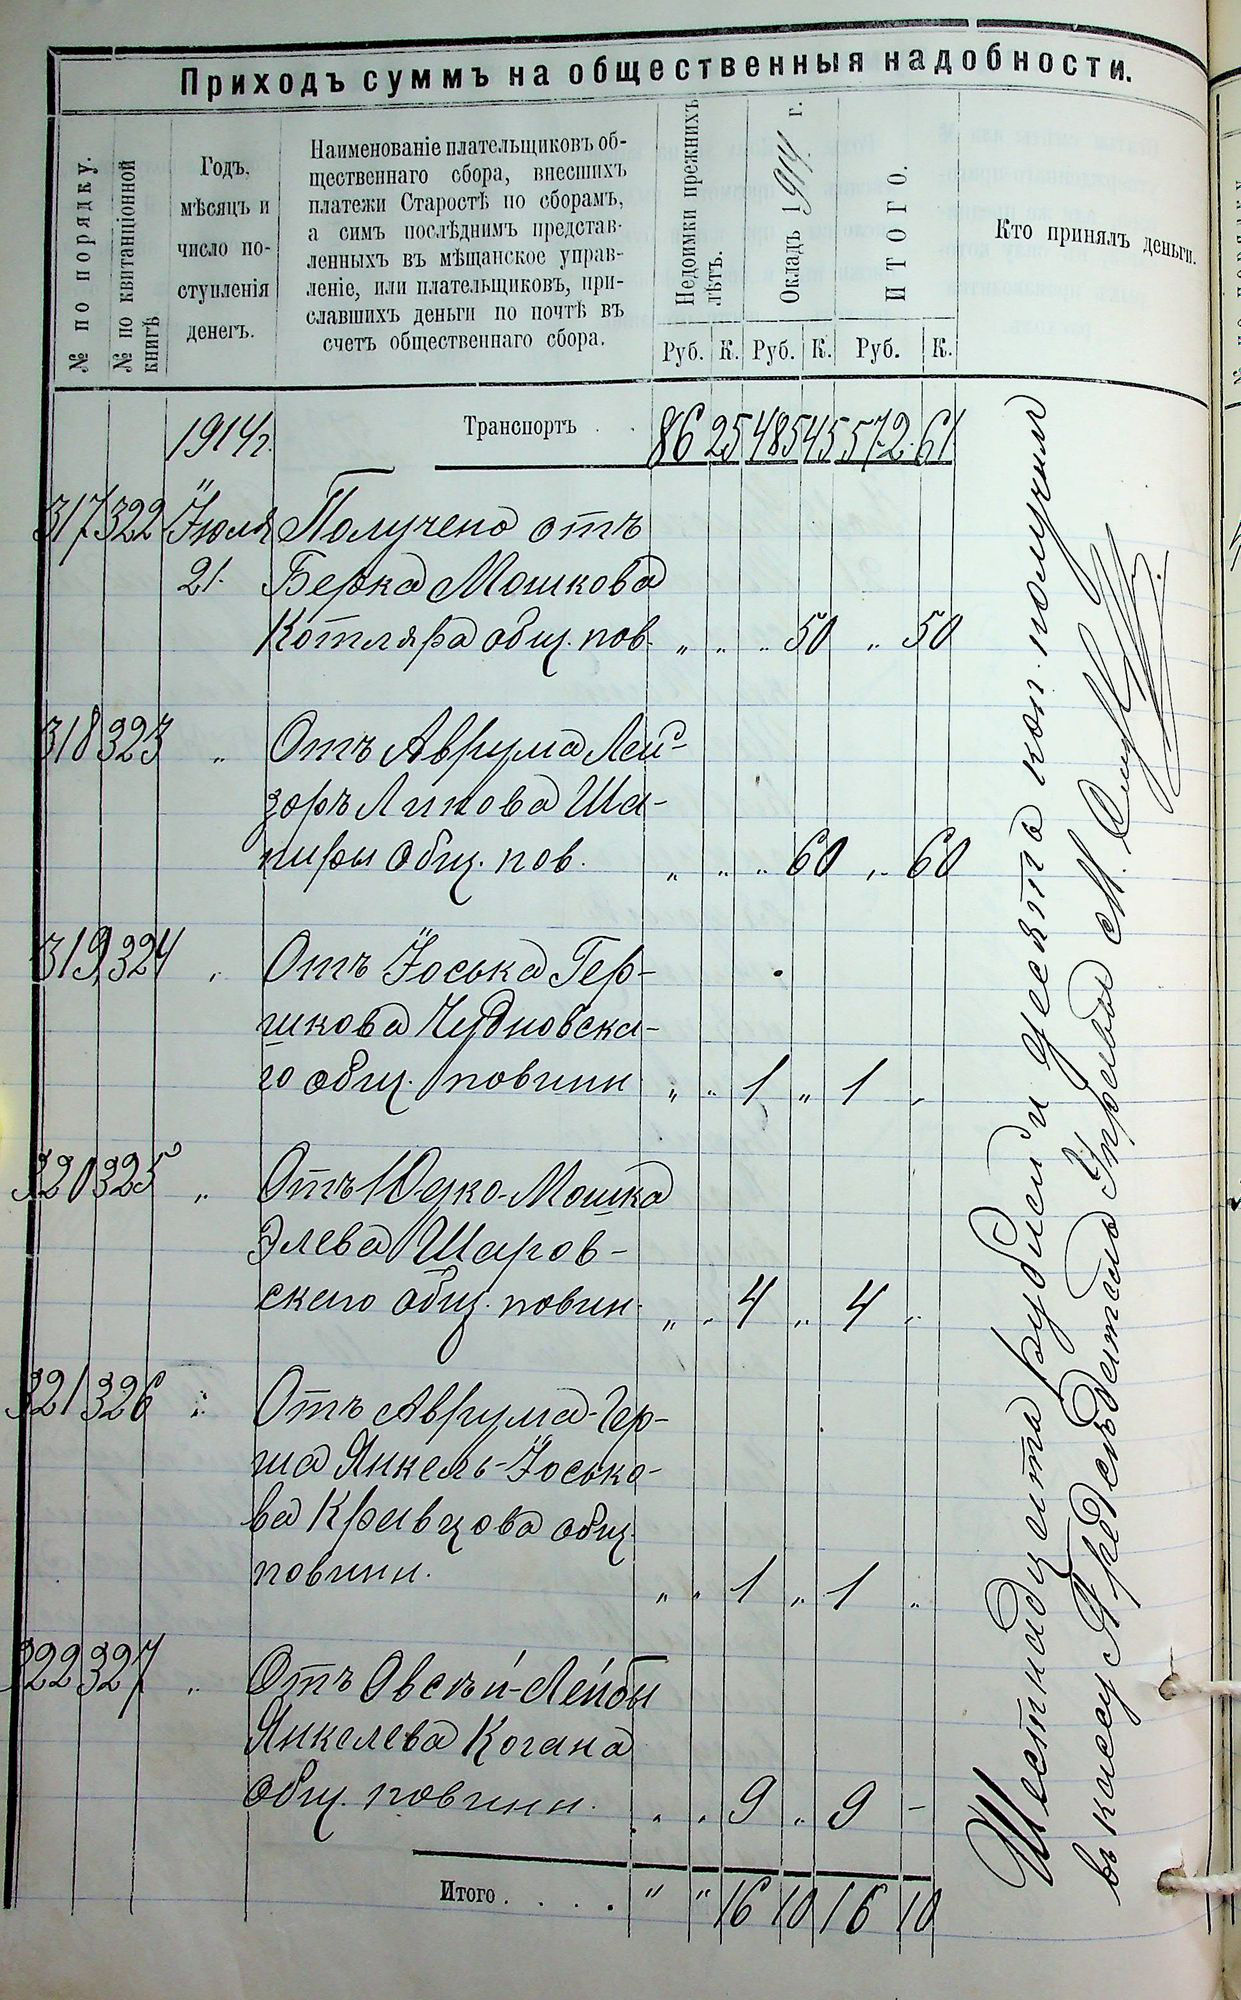 Приходъ суммъ на общественныя надобности.
№ по порядку.
№ по квитанціонной книгѣ
Годъ,
мѣсяцъ и
число по-
ступленія
денегъ.
Наименованіе плательщиковъ об-
щественнаго сбора, внесшихъ
платежи Старостѣ по сборамъ,
а симъ послѣднимъ представ-
ленныхъ въ мѣщанское управ-
леніе, или плательщиковъ, при-
славшихъ деньги по почтѣ въ
счетъ общественнаго сбора.
Недоимки прежнихъ лѣтъ.
Окладъ 1914 г.
ИТОГО.
Кто принялъ деньги.
Руб. К. Руб. К. Руб. К.
1914 г. Транспортъ . . 86 25 485 45 572 61
317 322 Іюля Получено отъ
21. Берка Мошкова
Котляра общ. пов. „ „ „ 50 „ 50
318 323 „ Отъ Аврума Лей-
зоръ Липова Ша-
пиры общ. пов. „ „ „ 60 „ 60
319 324 „ Отъ Іоська Гер-
шкова Чудновска-
го общ. повинн „ „ 1 „ 1 „
320 325 „ Отъ Юдко-Мошка
Элева Шаров-
скаго общ. повин. „ „ 4 „ 4 „
321 326 „ Отъ Аврума-Гер-
ша Янкель-Іоська-
ва Кравцова общ.
повинн. „ „ 1 „ 1 „
322 327 „ Отъ Овсѣй-Лейбы
Янкелева Когана
общ. повинн. „ „ 9 „ 9 –
Итого . . . . „ „ 16 10 16 10
Шестнадцать рублей и десять коп. получилъ
въ кассу Предсѣдатель Управы М.